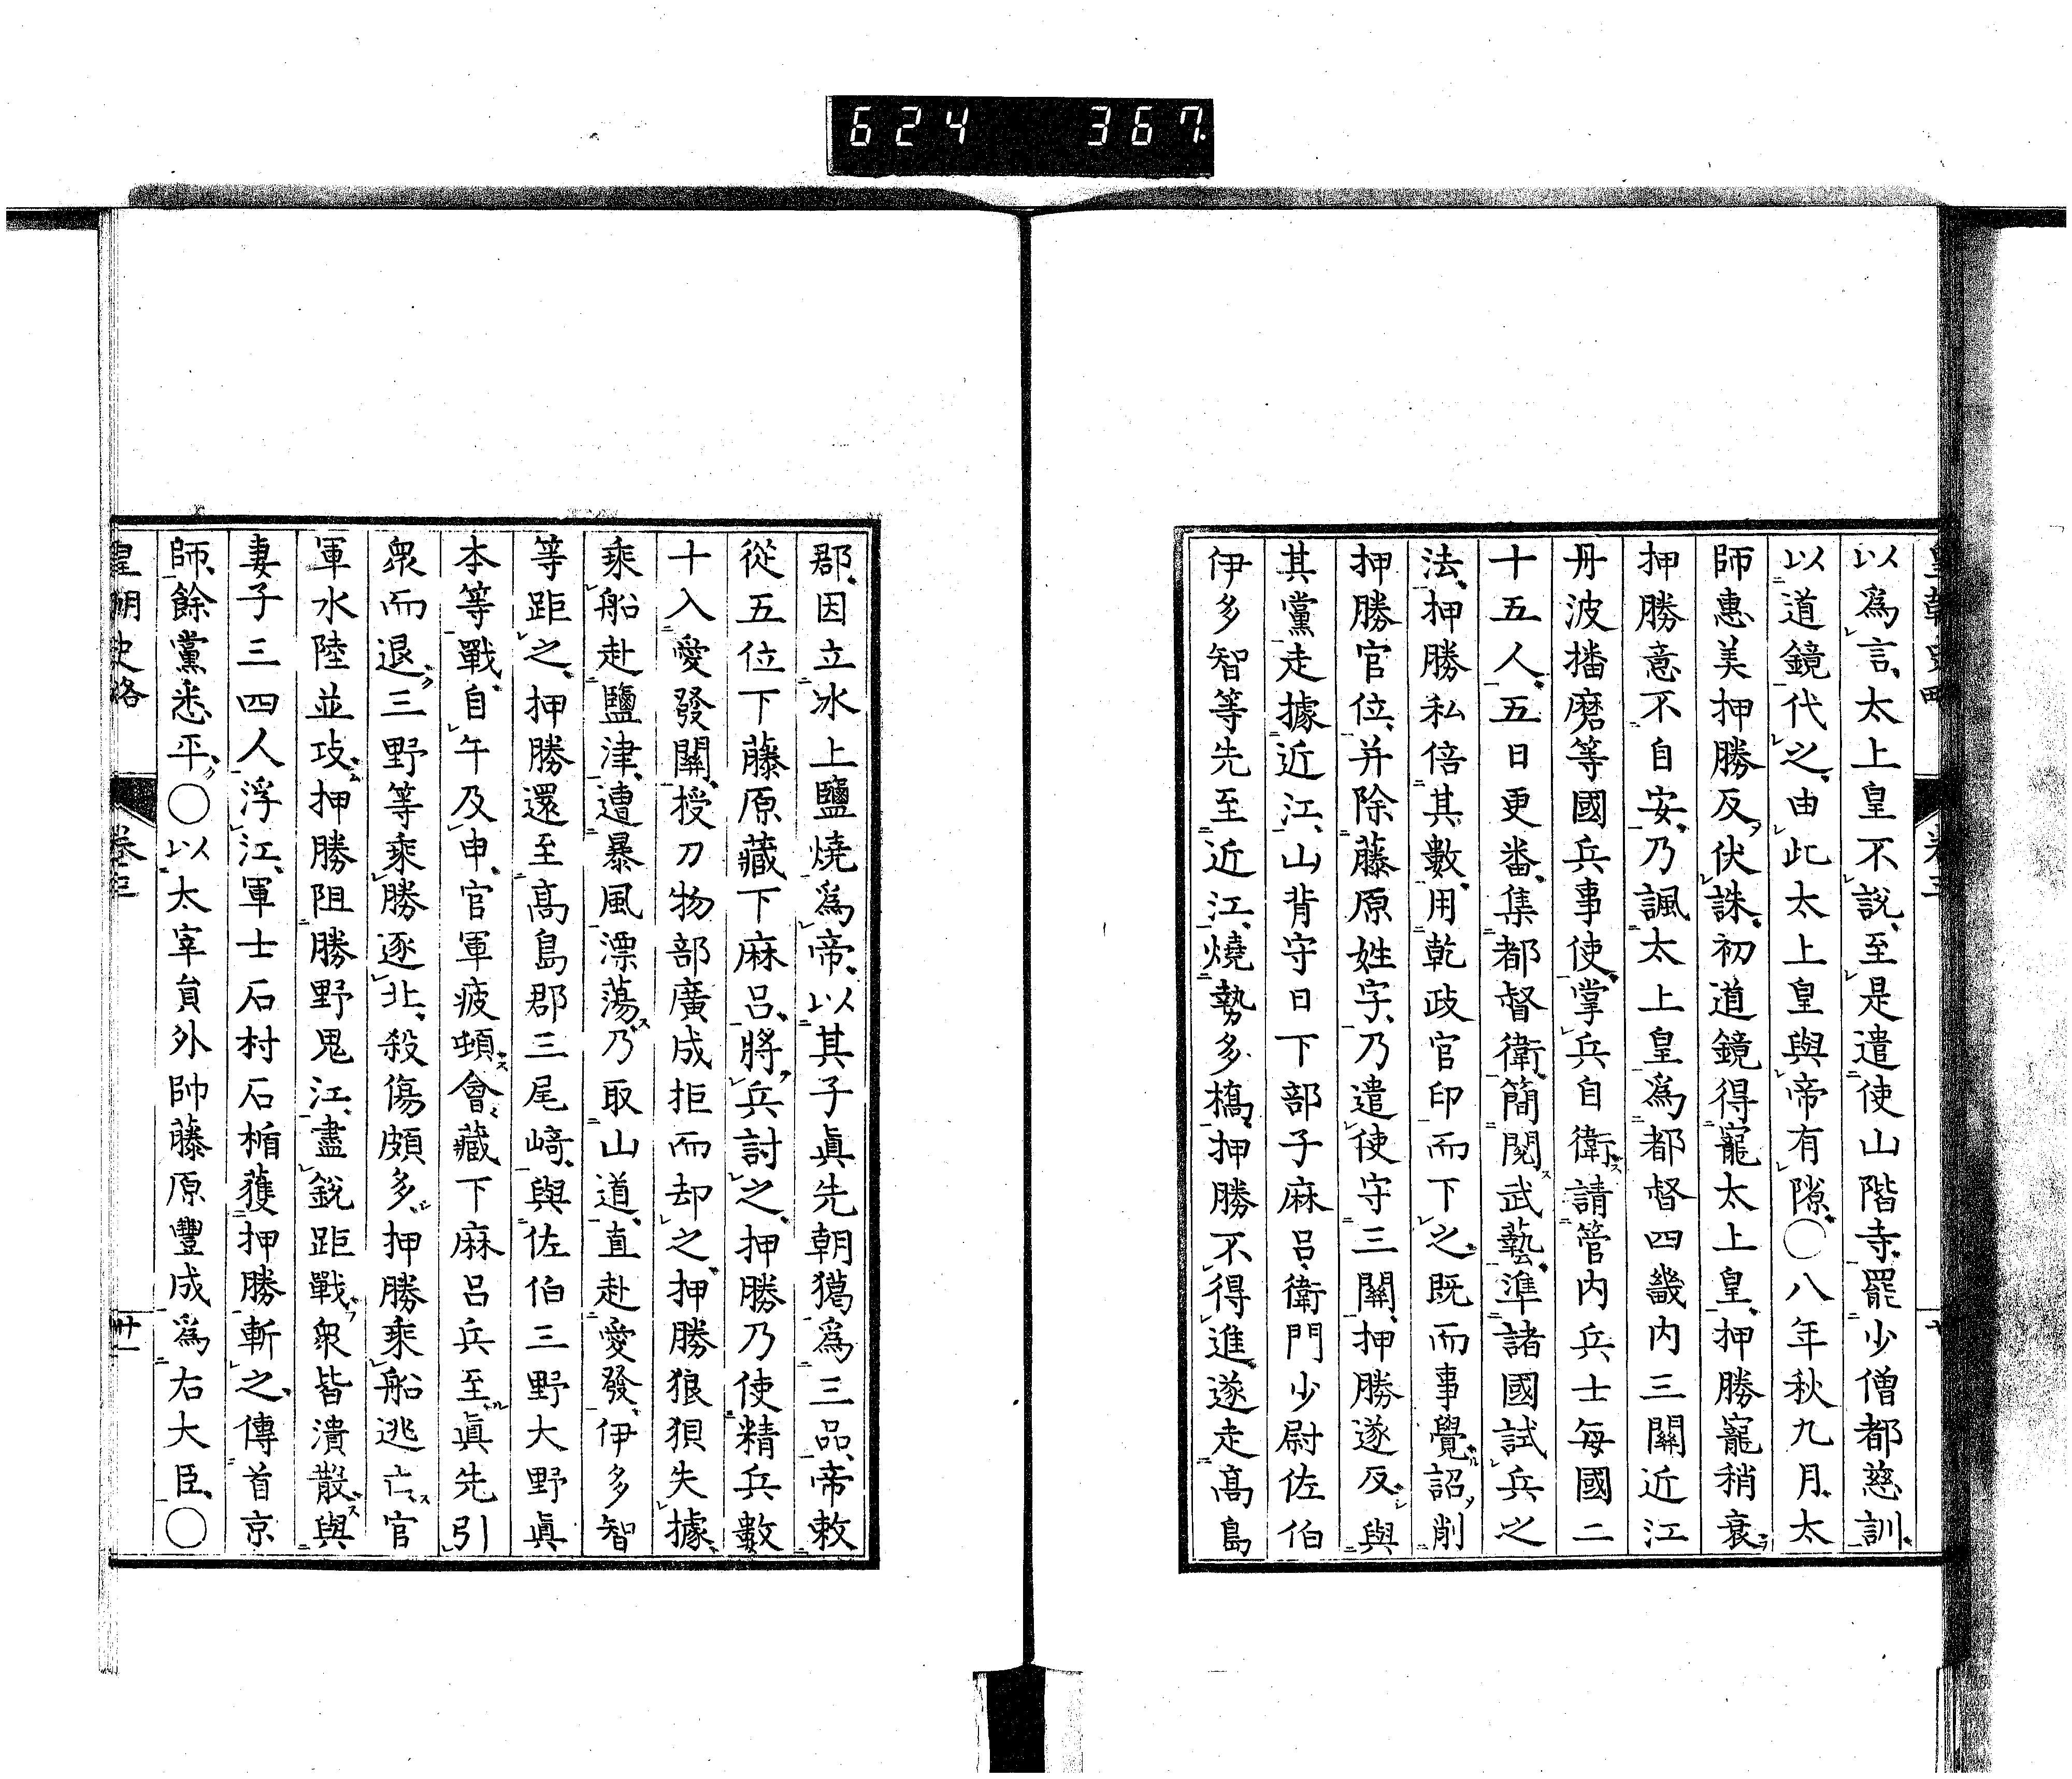 624 367
以爲言、太上皇不說、至是遣使山階寺、罷少僧都慈訓、
以道鏡代之、由此太上皇與帝有隙、〇八年秋九月、太
師惠美押勝反、伏誅、初道鏡得寵太上皇、押勝寵稍衰、
押勝意不自安、乃諷太上皇、爲都督四畿内三關近江
丹波播磨等國兵事使、掌兵自衛、請管内兵士每國二
十五人、五日更番、集都督衛、簡閱武藝、準諸國試兵之
法、押勝私倍其數、用乾政官印而下之、既而事覺、詔削
押勝官位、并除藤原姓字、乃遣使守三關、押勝遂反、與
其黨走據近江、山背守日下部子麻呂、衛門少尉佐伯
伊多智等先至近江、燒勢多橋、押勝不得進、遂走高島
郡、因立氷上鹽燒爲帝、以其子眞先朝獦爲三品、帝敕
從五位下藤原藏下麻呂、將兵討之、押勝乃使精兵數
十入愛發關、授刀物部廣成拒而却之、押勝狼狽失據、
乘船赴鹽津、遭暴風漂蕩、乃取山道、直赴愛發、伊多智
等距之、押勝還至高島郡三尾﨑、與佐伯三野大野眞
本等戰、自午及申、官軍疲頓、會藏下麻呂兵至、眞先引
衆而退、三野等乘勝逐北、殺傷頗多、押勝乘船逃亡、官
軍水陸並攻、押勝阻勝野鬼江、盡銳距戰、衆皆潰散、與
妻子三四人浮江、軍士石村石楯獲押勝斬之、傳首京
師、餘黨悉平、〇以太宰貟外帥藤原豐成爲右大臣、〇
皇朝史略 卷三 卅一